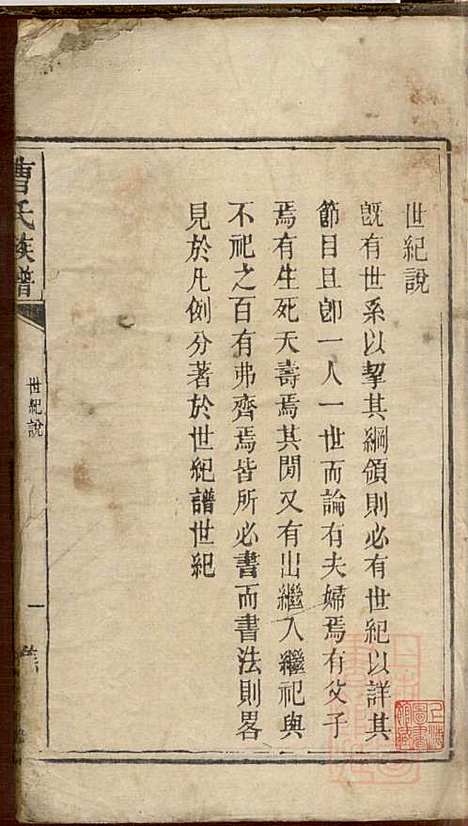 世紀說
既有世系以挈其綱領則必有世紀以詳其
節目且卽一人一世而論有夫婦焉有父子
焉有生死夭壽焉其閒又有出繼入繼祀與
不祀之百有弗齊焉皆所必書而書法則畧
見於凡例分著於世紀譜世紀
曹氏族譜
世紀說
一